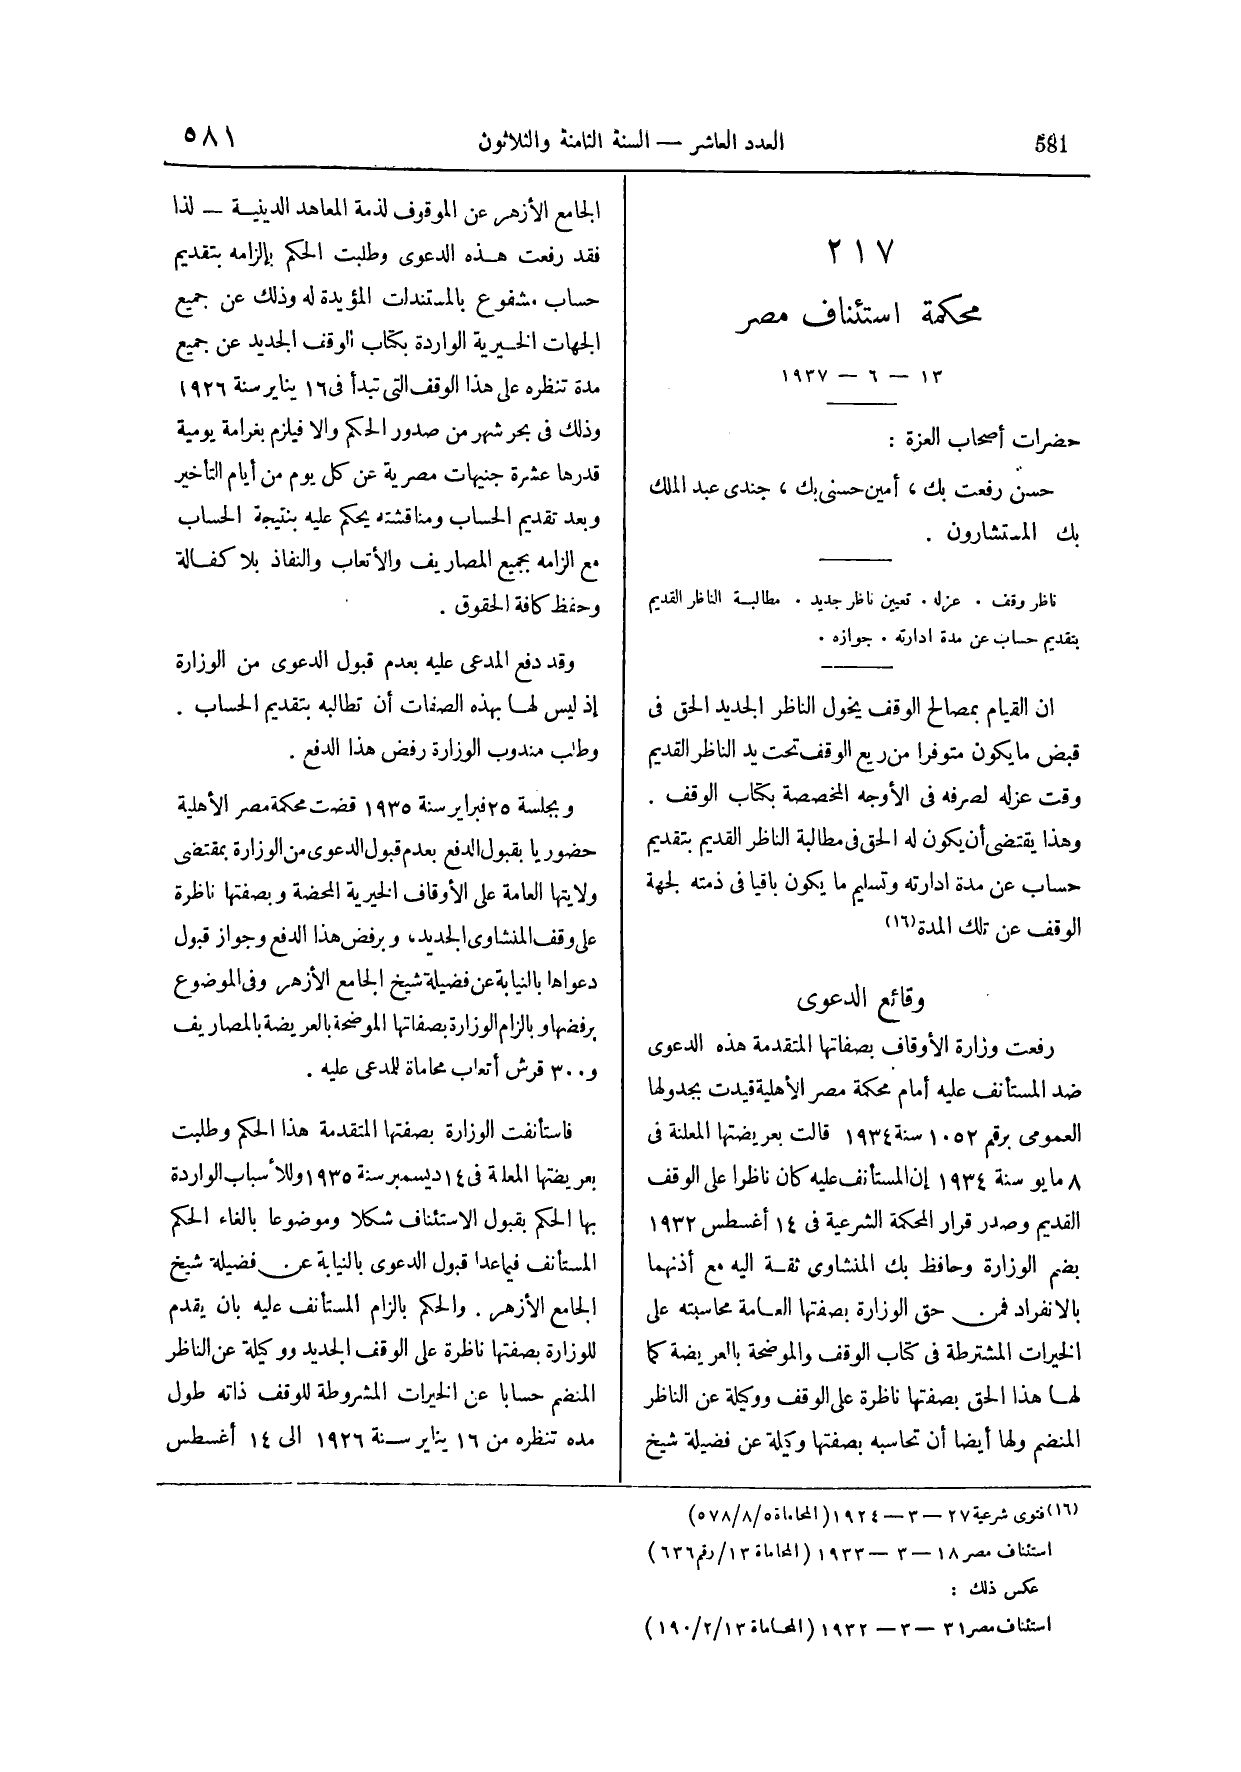 581
العدد العاشر — السنة الثامنة والثلاثون
٥٨١
٢١٧
محكمة استئناف مصر
١٣ — ٦ — ١٩٣٧
حضرات أصحاب العزة :
حسن رفعت بك ، أمين حسنى بك ، جندى عبد الملك
بك المستشارون .
ناظر وقف . عزله . تعيين ناظر جديد . مطالبة الناظر القديم
بتقديم حساب عن مدة ادارته . جوازه .
ان القيام بمصالح الوقف يخول الناظر الجديد الحق فى
قبض ما يكون متوفرا من ريع الوقف تحت يد الناظر القديم
وقت عزله لصرفه فى الأوجه المخصصة بكتاب الوقف .
وهذا يقتضى أن يكون له الحق فى مطالبة الناظر القديم بتقديم
حساب عن مدة ادارته وتسليم ما يكون باقيا فى ذمته لجهة
الوقف عن تلك المدة (١٦)
وقائع الدعوى
رفعت وزارة الأوقاف بصفاتها المتقدمة هذه الدعوى
ضد المستأنف عليه أمام محكمة مصر الأهلية قيدت بجدولها
العمومى برقم ١٠٥٢ سنة ١٩٣٤ قالت بعريضتها المعلنة فى
٨ مايو سنة ١٩٣٤ إن المستأنف عليه كان ناظرا على الوقف
القديم وصدر قرار المحكمة الشرعية فى ١٤ أغسطس ١٩٣٢
بضم الوزارة وحافظ بك المنشاوى ثقة اليه مع أذنهما
بالانفراد فمن حق الوزارة بصفتها العامة محاسبته على
الخيرات المشترطة فى كتاب الوقف والموضحة بالعريضة كما
لها هذا الحق بصفتها ناظرة على الوقف ووكيلة عن الناظر
المنضم ولها أيضا أن تحاسبه بصفتها وكيلة عن فضيلة شيخ
الجامع الأزهر عن الموقوف لذمة المعاهد الدينية — لذا
فقد رفعت هذه الدعوى وطلبت الحكم بإلزامه بتقديم
حساب مشفوع بالمستندات المؤيدة له وذلك عن جميع
الجهات الخيرية الواردة بكتاب الوقف الجديد عن جميع
مدة تنظره على هذا الوقف التى تبدأ فى ١٦ يناير سنة ١٩٢٦
وذلك فى بحر شهر من صدور الحكم والا فيلزم بغرامة يومية
قدرها عشرة جنيهات مصرية عن كل يوم من أيام التأخير
وبعد تقديم الحساب ومناقشته يحكم عليه بنتيجة الحساب
مع الزامه بجميع المصاريف والأتعاب والنفاذ بلا كفالة
وحفظ كافة الحقوق .
وقد دفع المدعى عليه بعدم قبول الدعوى من الوزارة
إذ ليس لها بهذه الصفات أن تطالبه بتقديم الحساب .
وطلب مندوب الوزارة رفض هذا الدفع .
وبجلسة ٢٥ فبراير سنة ١٩٣٥ قضت محكمة مصر الأهلية
حضوريا بقبول الدفع بعدم قبول الدعوى من الوزارة بمقتضى
ولايتها العامة على الأوقاف الخيرية المحضة وبصفتها ناظرة
على وقف المنشاوى الجديد، وبرفض هذا الدفع وجواز قبول
دعواها بالنيابة عن فضيلة شيخ الجامع الأزهر وفى الموضوع
برفضها وبالزام الوزارة بصفاتها الموضحة بالعريضة بالمصاريف
و٣٠٠ قرش أتعاب محاماة للمدعى عليه .
فاستأنفت الوزارة بصفتها المتقدمة هذا الحكم وطلبت
بعريضتها المعلة فى ١٤ ديسمبر سنة ١٩٣٥ وللأسباب الواردة
بها الحكم بقبول الاستئناف شكلا وموضوعا بالغاء الحكم
المستأنف فيما عدا قبول الدعوى بالنيابة عن فضيلة شيخ
الجامع الأزهر . والحكم بالزام المستأنف عليه بان يقدم
للوزارة بصفتها ناظرة على الوقف الجديد ووكيلة عن الناظر
المنضم حسابا عن الخيرات المشروطة للوقف ذاته طول
مده تنظره من ١٦ يناير سنة ١٩٢٦ الى ١٤ أغسطس
(١٦) فتوى شرعية ٢٧ — ٣ — ١٩٢٤ (المحاماة ٥/٨/٥٧٨)
استئناف مصر ١٨ — ٣ — ١٩٣٣ (المحاماة ١٣/رقم ٦٣٦)
عكس ذلك :
استئناف مصر ٣١ — ٣ — ١٩٣٢ (المحاماة ١٣/٢/١٩٠)